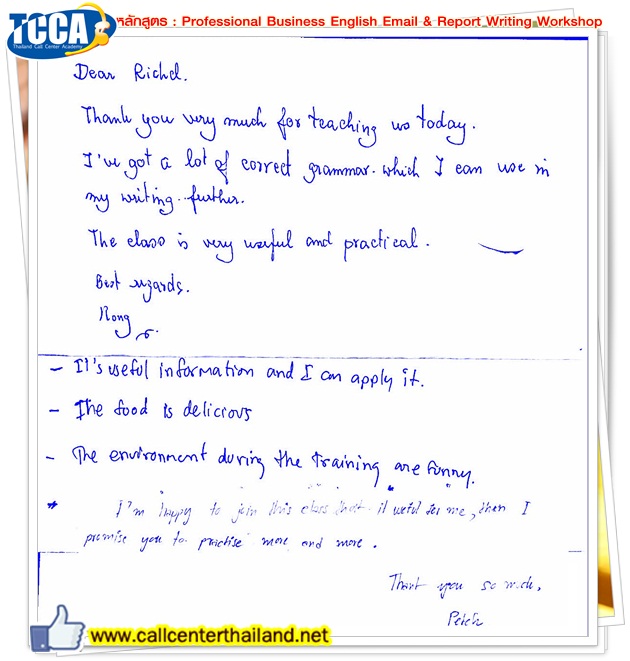 TCCA
Thailand Call Center Academy
หลักสูตร : Professional Business English Email & Report Writing Workshop
Dear Richd.
Thank you very much for teaching us today.
I've got a lot of correct grammar. which I can use in
my writing..further.
The class is very useful and practical.
Best regards.
Nong
- It's useful information and I can apply it.
- The food is delicious
- The environment during the training are funny.
* I'm happy to join this class that it useful for me, then I
promise you to practise more and more.
Thank you so much,
www.callcenterthailand.net